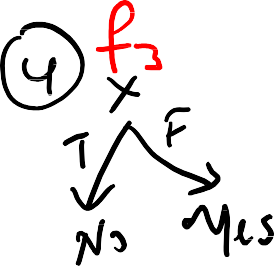 4 f3
X
T F
No Yes